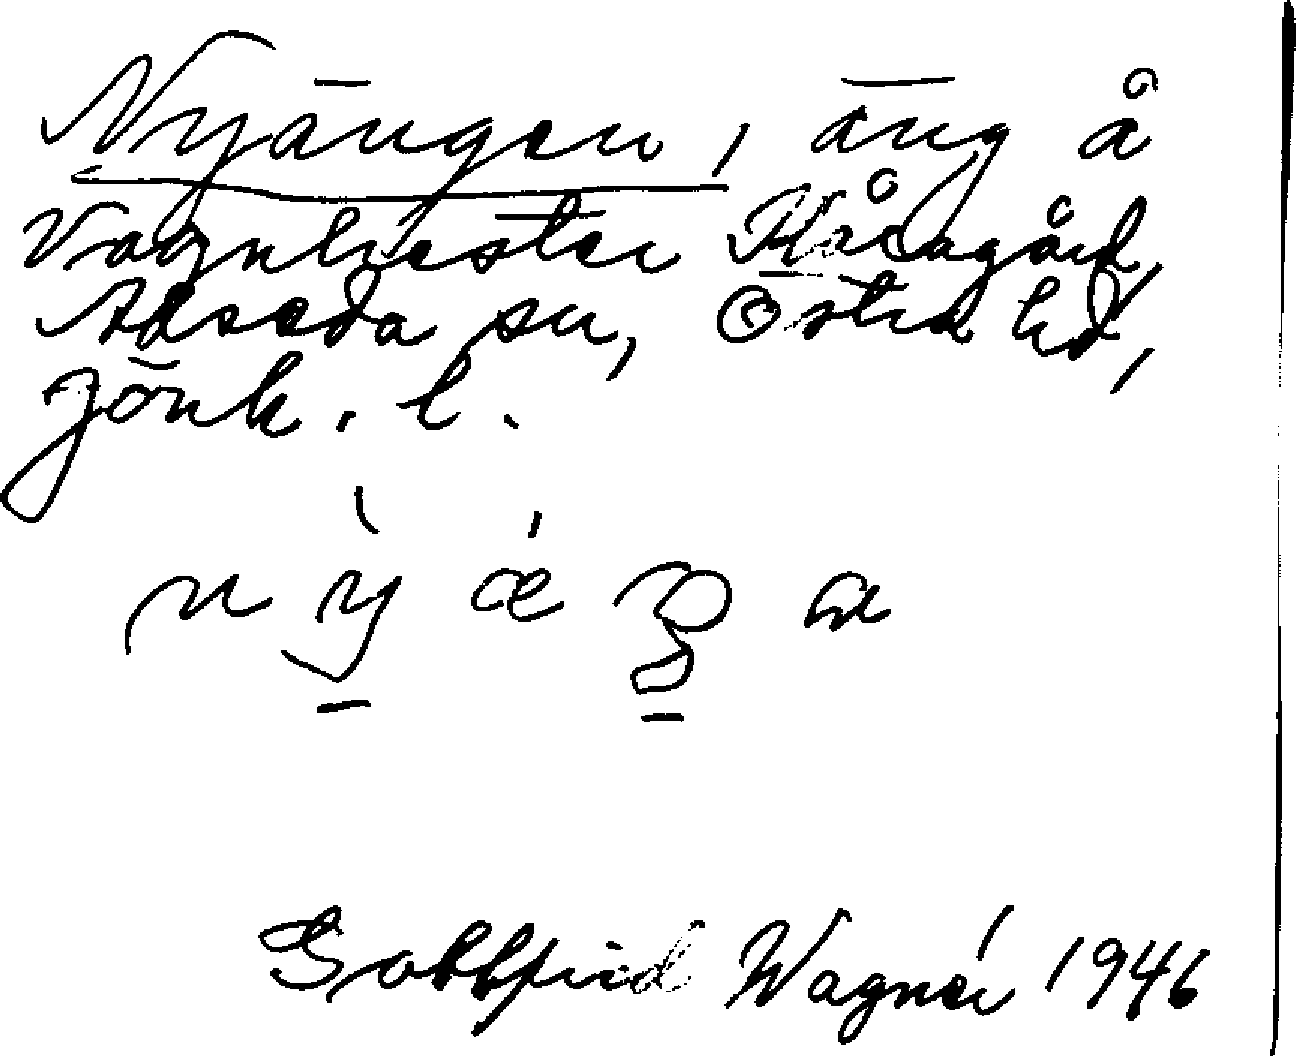 Nyängen, äng å
Vagnhester Håragård,
Alseda sn, Östra hd,
Jönk. l.
Gottfrid Wagnér 1946